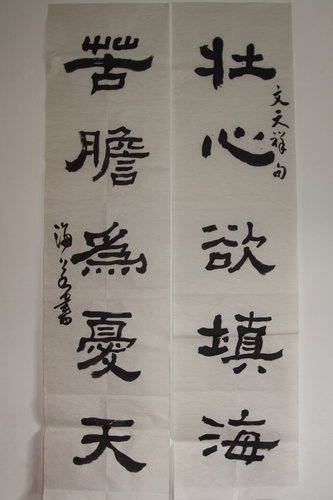 壮心欲填海
文天祥句
苦膽為憂天
海
書